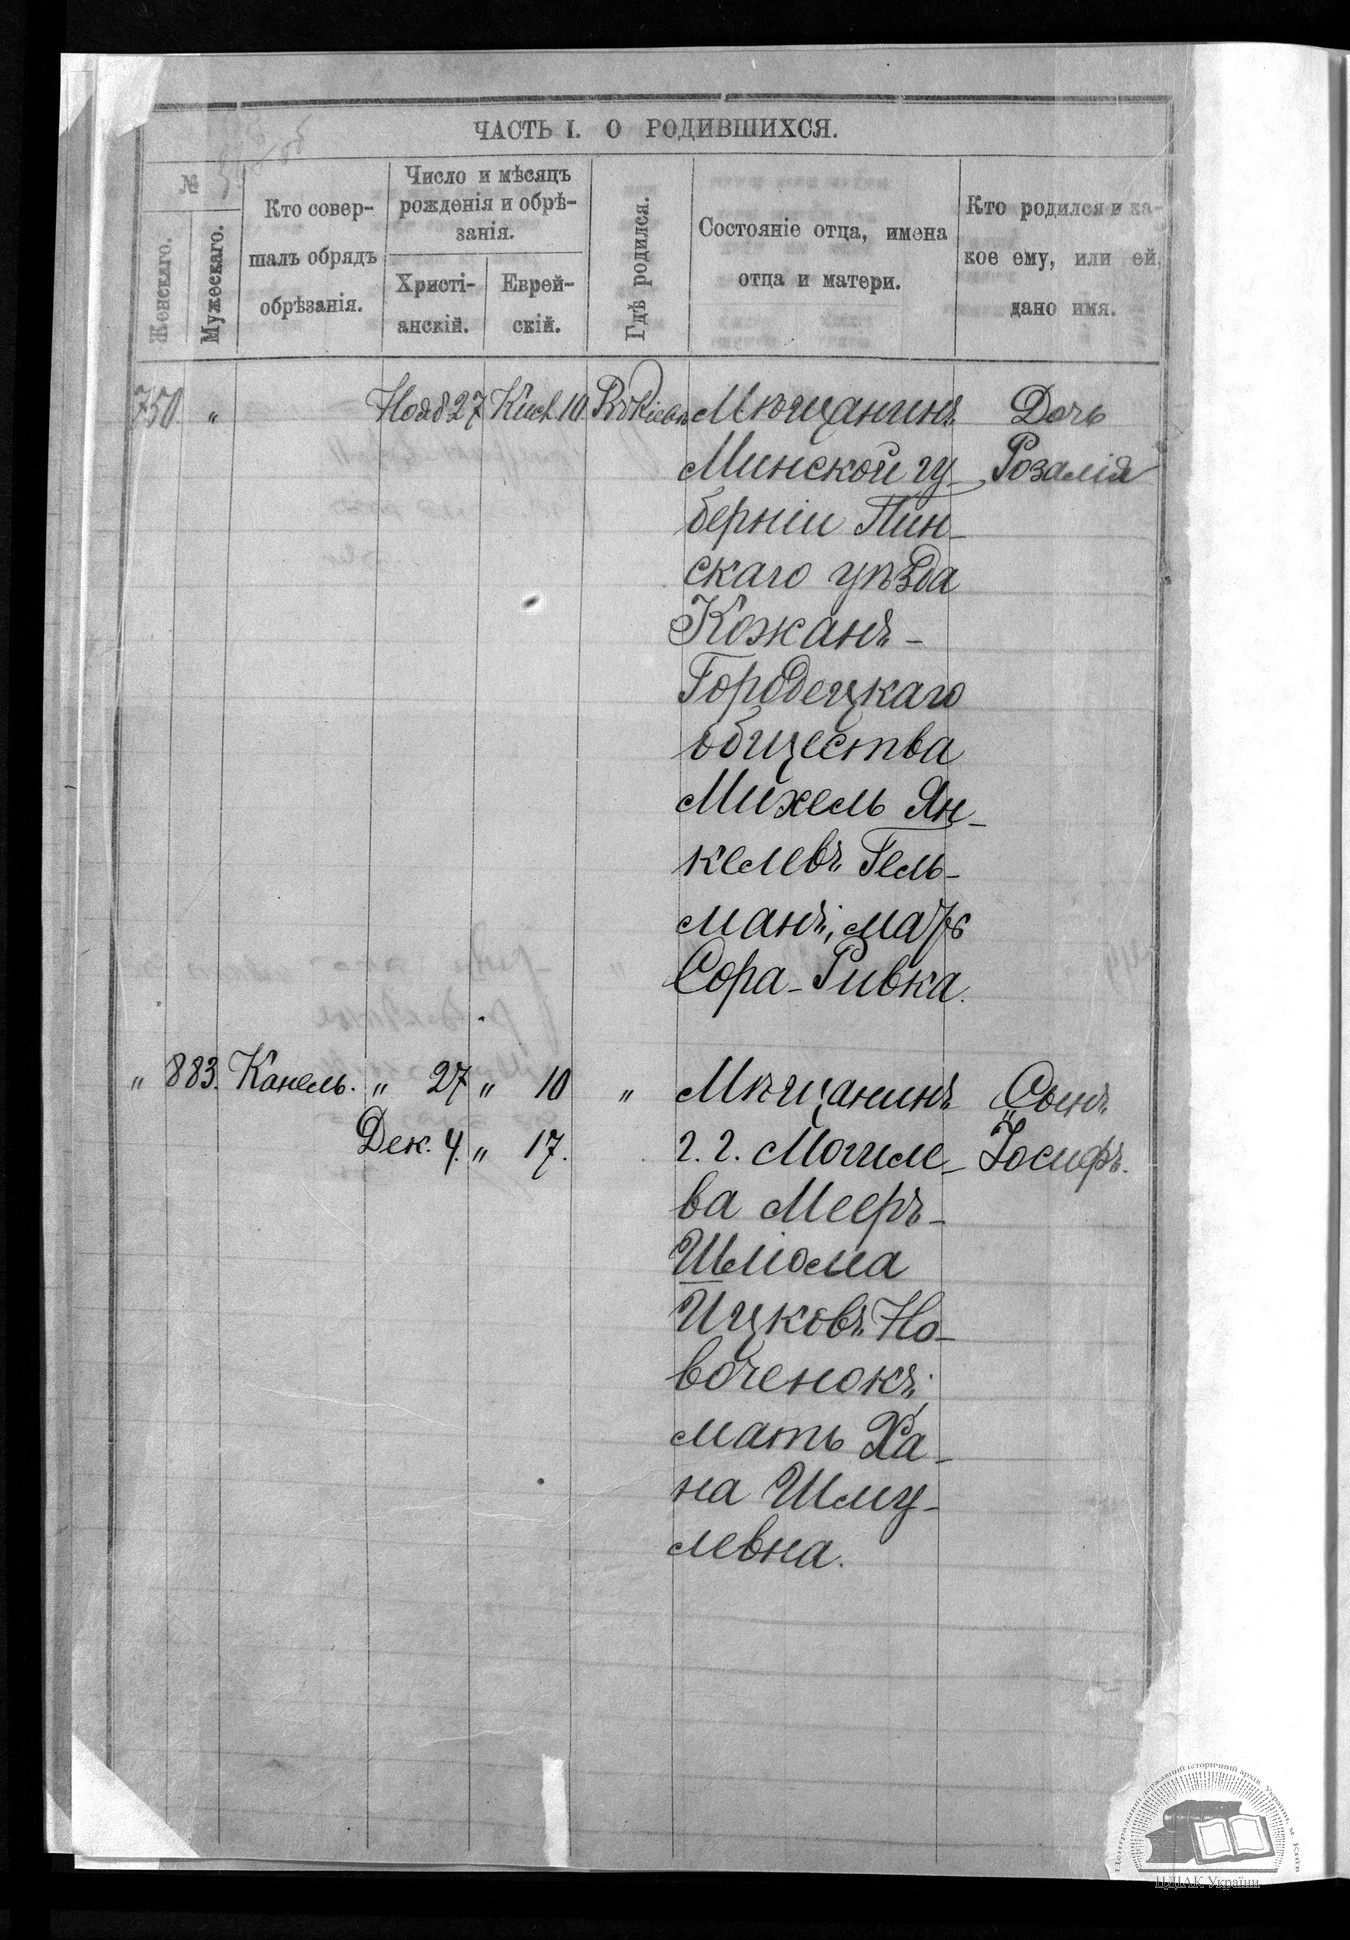 ЧАСТЬ I. О РОДИВШИХСЯ.
№
Женскаго.
Мужескаго.
Кто совер-
шалъ обрядъ
обрѣзанія.
Число и мѣсяцъ
рожденія и обрѣ-
занія.
Христі-
анскій.
Еврей-
скій.
Гдѣ родился.
Состояніе отца, имена
отца и матери.
Кто родился и ка-
кое ему, или ей,
дано имя.
750 " Нояб 27 Кисл. 10. Въ Кіевѣ Мѣщанинъ Дочь
Минской гу- Розалія
берніи Пин-
скаго уѣзда
Кожанъ-
Городецкаго
общества
Михель Ян-
келевъ Гель-
манъ, мать
Сора-Ривка.
" 883. Канель. " 27 " 10 " Мѣщанинъ Сынъ
Дек. 4. " 17. г. г. Могиле- Іосифъ.
ва Мееръ-
Шліома
Ицковъ Но-
воченокъ;
мать Ха-
на Шму-
левна.
Центральний державний історичний архів України, м. Київ
ЦДІАК України